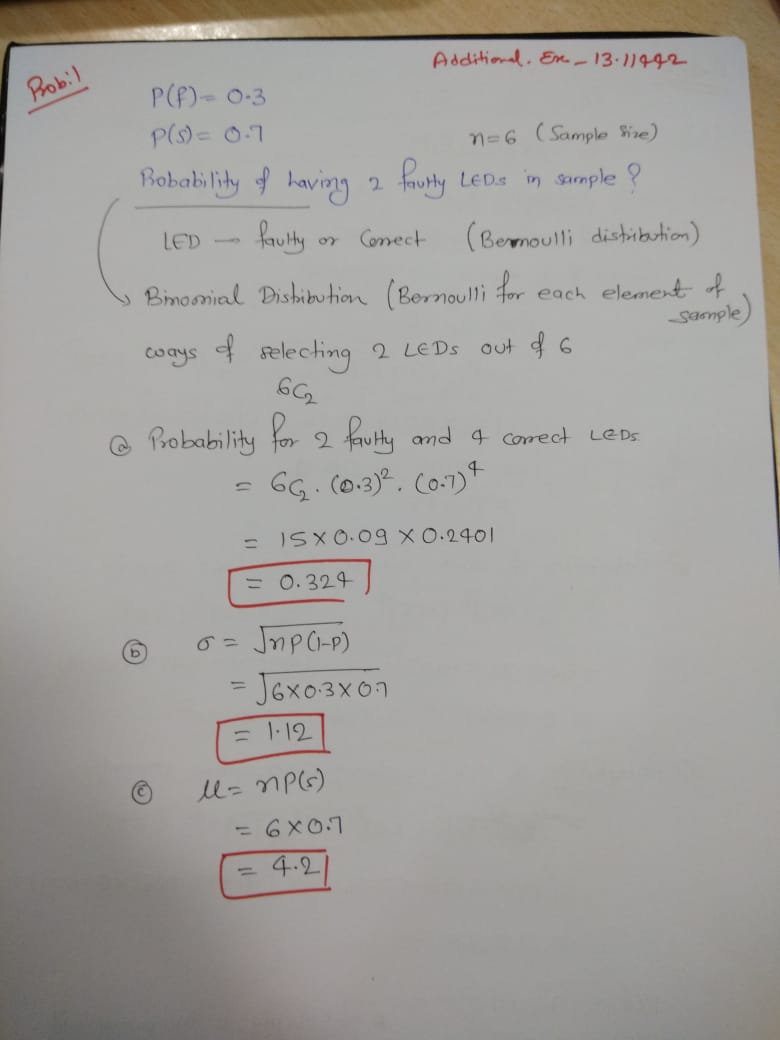 Additional. Ex - 13.11442
Prob:1
P(f) = 0.3
P(s) = 0.7
n=6 (Sample Size)
Probability of having 2 faulty LEDs in sample?
LED — faulty or Correct (Bernoulli distribution)
Binomial Distribution (Bernoulli for each element of sample)
ways of selecting 2 LEDs out of 6
6C₂
ⓐ Probability for 2 faulty and 4 correct LEDs
= 6C₂ . (0.3)² . (0.7)⁴
= 15 X 0.09 X 0.2401
= 0.324
ⓑ σ = √np(1-p)
= √6x0.3x0.7
= 1.12
ⓒ μ = nP(s)
= 6 X 0.7
= 4.2